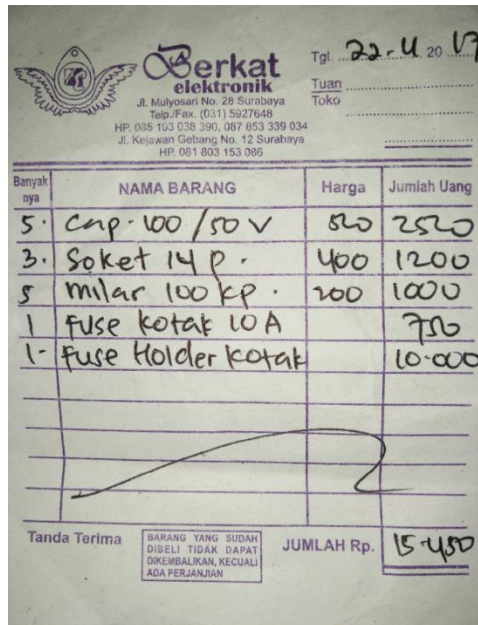 Berkat
elektronik
Jl. Mulyosari No. 28 Surabaya
Telp./Fax. (031) 5927648
HP. 085 103 038 390, 087 853 339 034
Jl. Kejawan Gebang No. 12 Surabaya
HP. 081 803 153 086
Tgl. 22-4 20 17
Tuan
Toko
Banyak nya NAMA BARANG Harga Jumlah Uang
5. Cap. 100/50 V 500 2500
3. Soket 14 p. 400 1200
5 milar 100 kp. 200 1000
1 fuse kotak 10 A 750
1- fuse Holder kotak 10.000
Tanda Terima
BARANG YANG SUDAH
DIBELI TIDAK DAPAT
DIKEMBALIKAN, KECUALI
ADA PERJANJIAN
JUMLAH Rp. 15.450